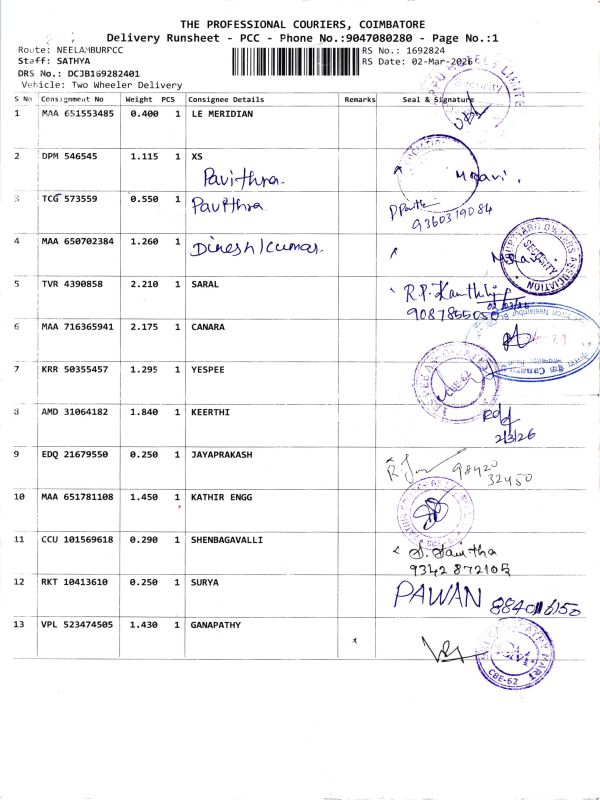 THE PROFESSIONAL COURIERS, COIMBATORE
Delivery Runsheet - PCC - Phone No.:9047080280 - Page No.:1
Route: NEELAMBURPCC RS No.: 1692824
Staff: SATHYA RS Date: 02-Mar-2026
DRS No.: DCJB169282401
Vehicle: Two Wheeler Delivery
S No Consignment No Weight PCS Consignee Details Remarks Seal & Signature
1 MAA 651553485 0.400 1 LE MERIDIAN
2 DPM 546545 1.115 1 XS
Pavithra.
3 TCG 573559 0.550 1 Pavithra
9360319084
4 MAA 650702384 1.260 1 Dinesh kumar
SECURITY
ASSOCIATION
5 TVR 4390858 2.210 1 SARAL
02/03/26
9087855050
6 MAA 716365941 2.175 1 CANARA
7 KRR 50355457 1.295 1 YESPEE
CBE-62
8 AMD 31064182 1.840 1 KEERTHI
2/3/26
9 EDQ 21679550 0.250 1 JAYAPRAKASH
98420
32450
10 MAA 651781108 1.450 1 KATHIR ENGG
11 CCU 101569618 0.290 1 SHENBAGAVALLI
9342872105
12 RKT 10413610 0.250 1 SURYA
PAWAN
13 VPL 523474505 1.430 1 GANAPATHY
CBE-62